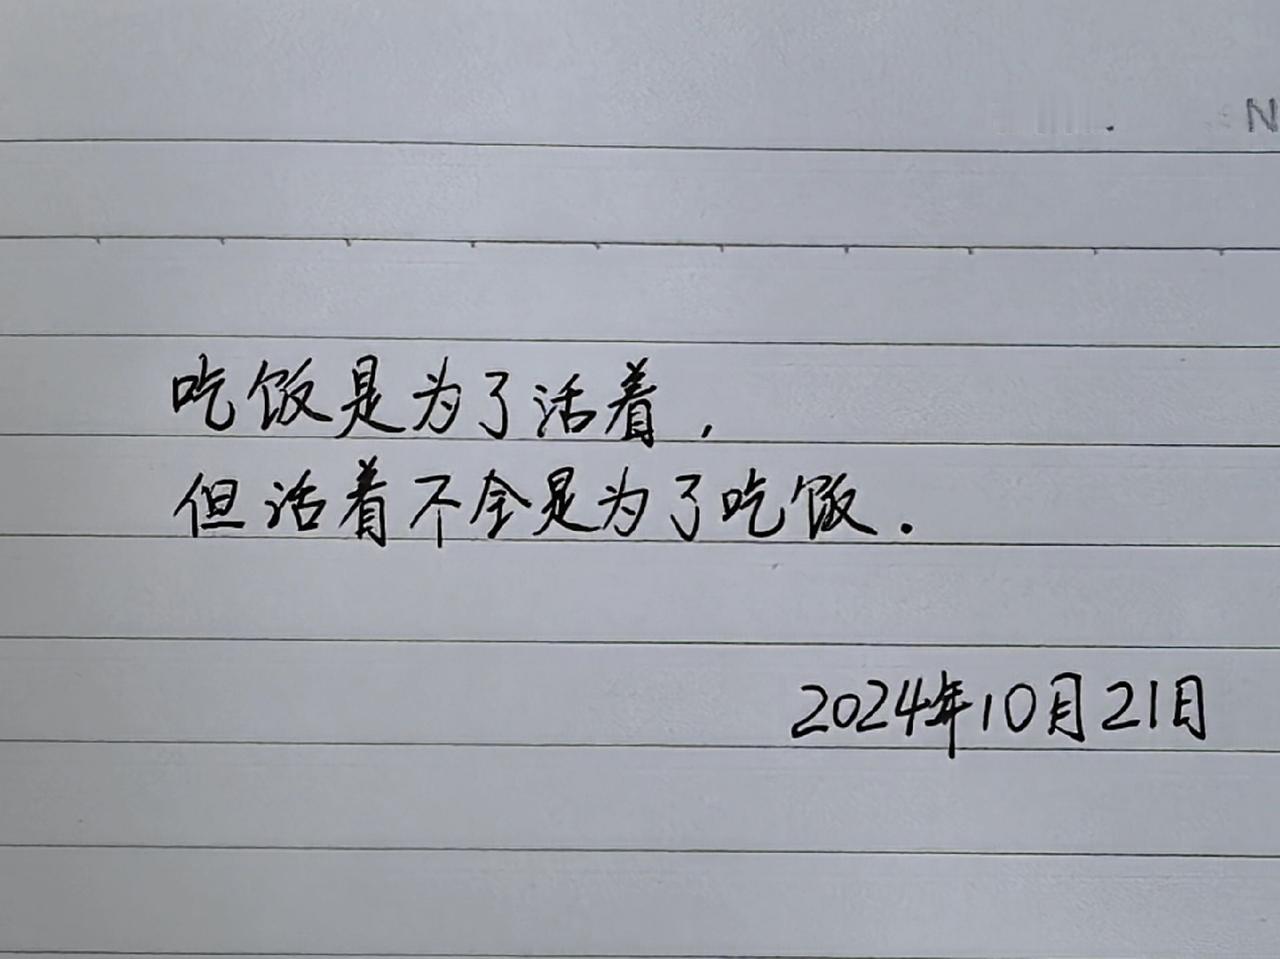 N
吃饭是为了活着,
但活着不全是为了吃饭.
2024年10月21日